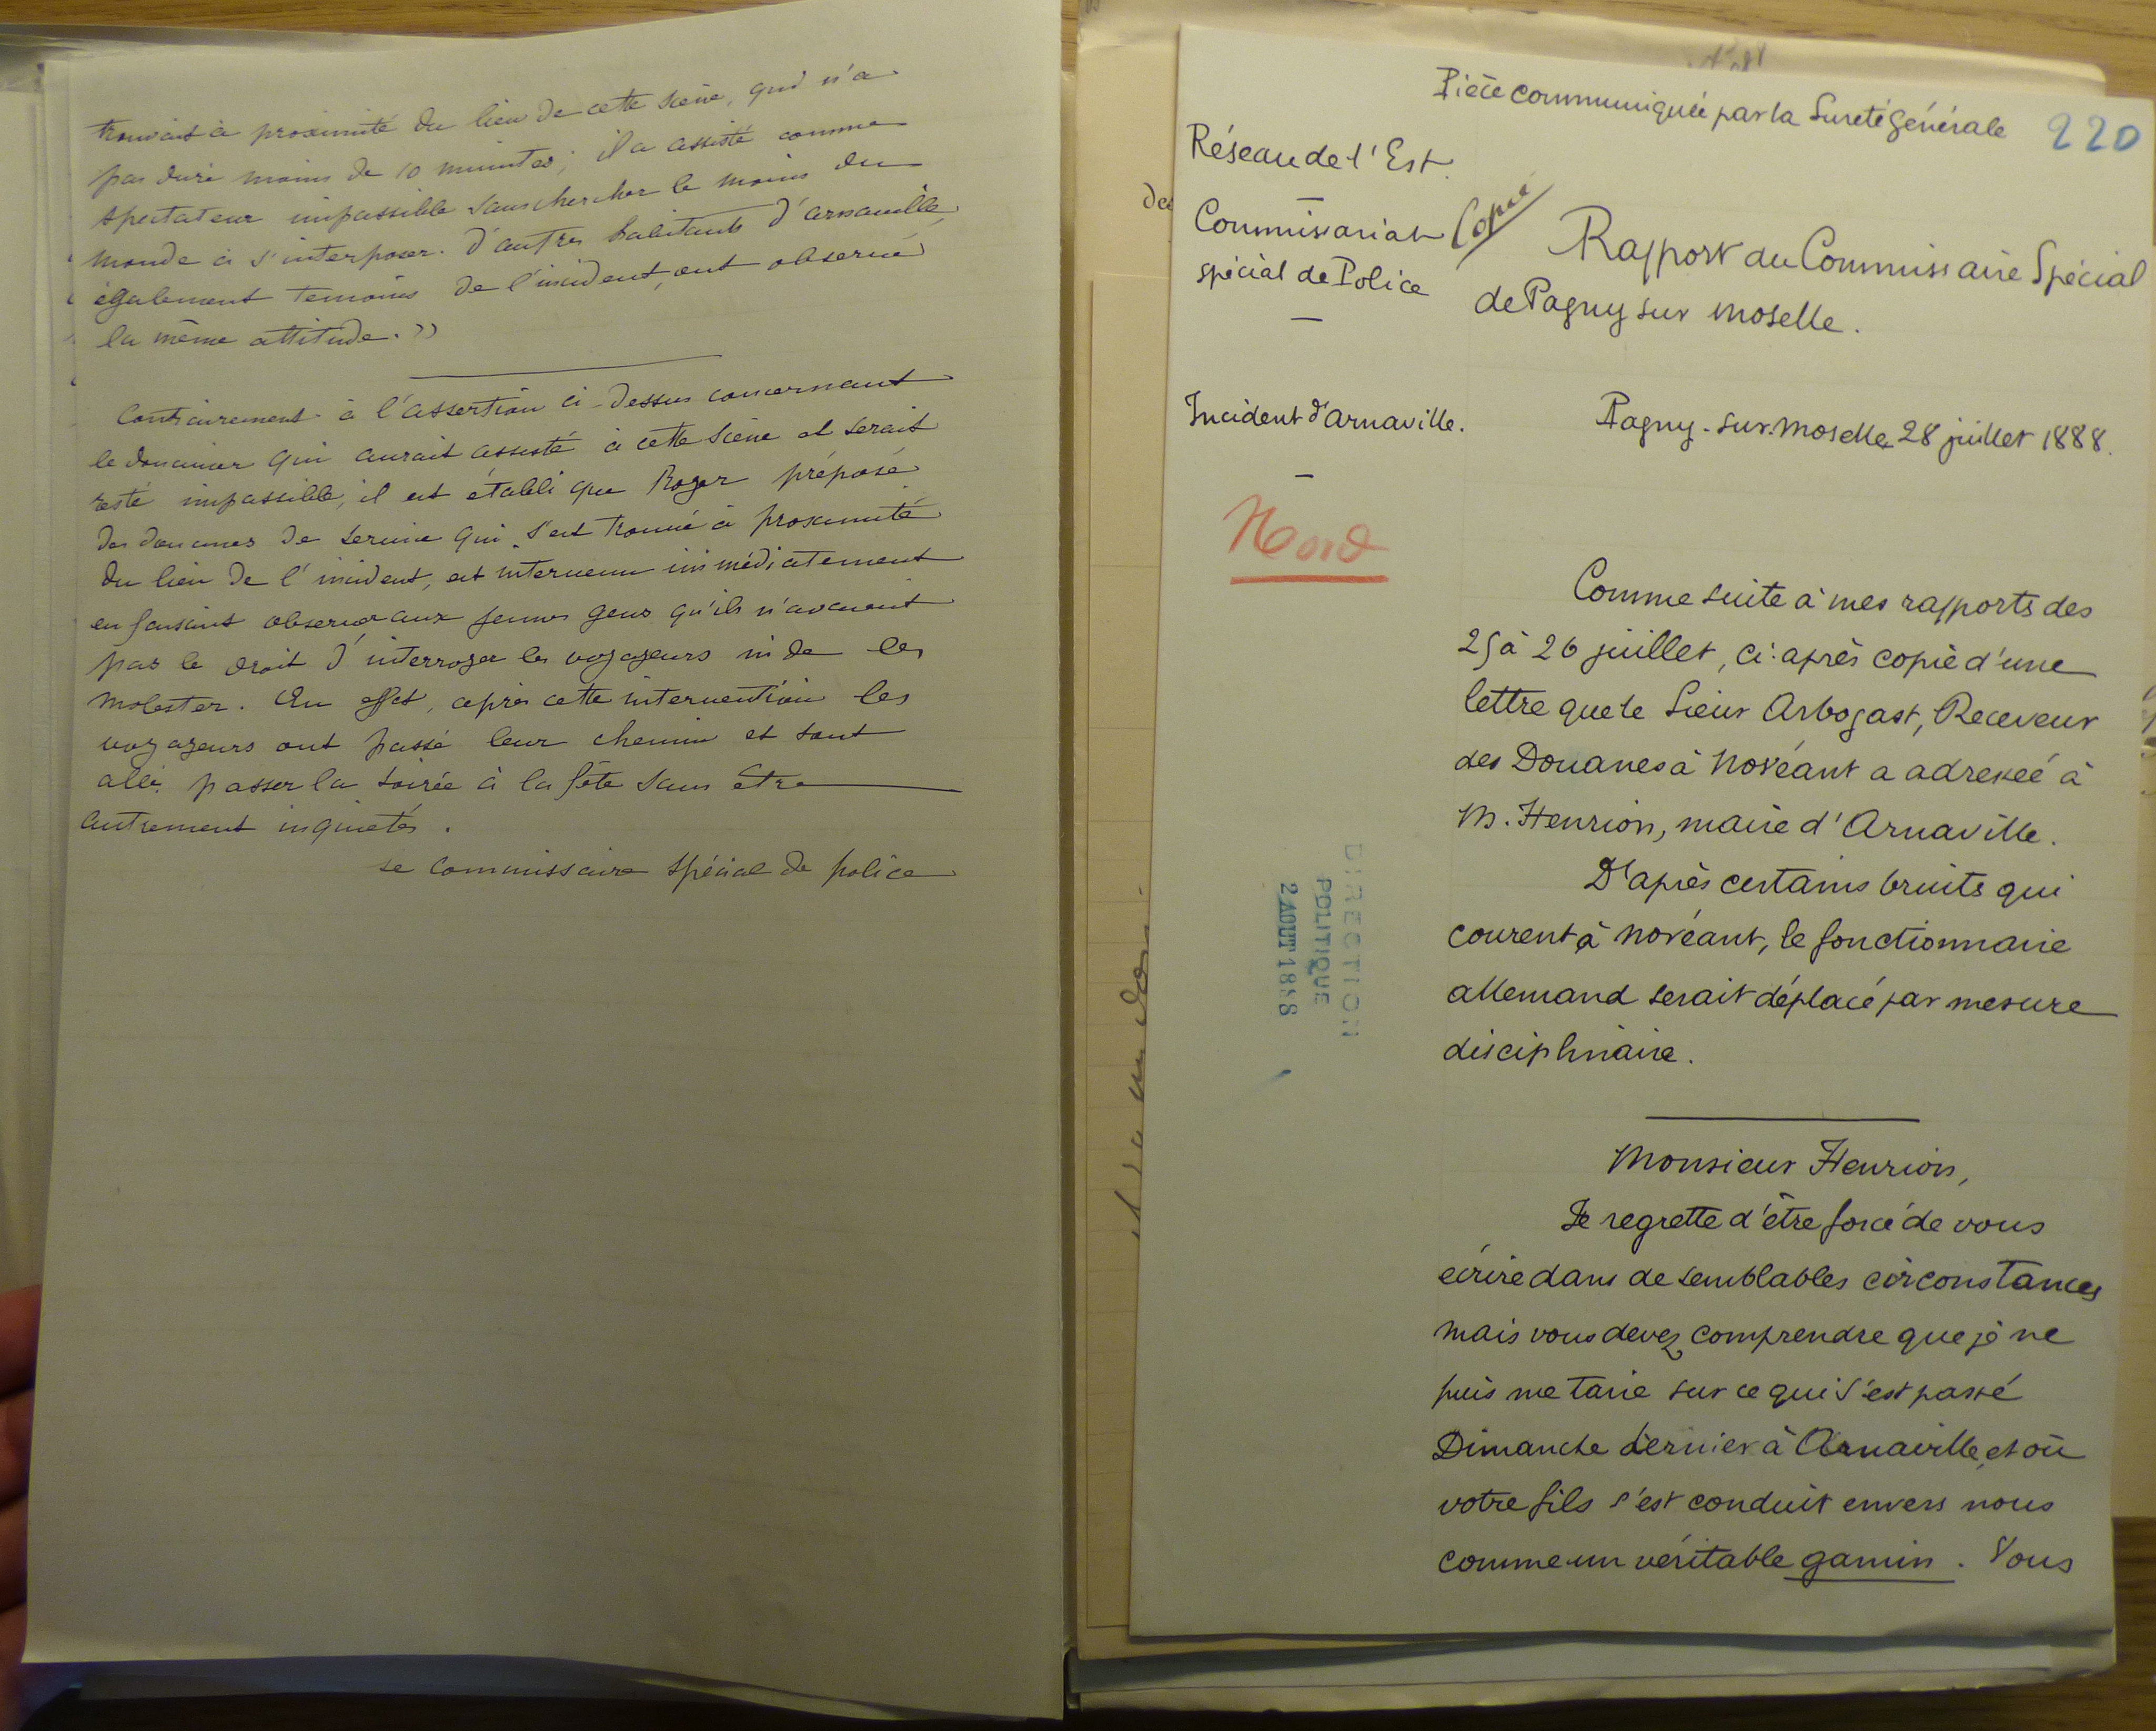 trouvait à proximité du lieu de cette scène, qui n'a
pas duré moins de 10 minutes; il a assisté comme
spectateur impassible sans chercher le moins du
monde à s'interposer. d'autres habitants d'arnaville,
également temoins de l'incident, ont observé
la même attitude. »
Contrairement à l'assertion ci-dessus concernant
le douanier qui aurait assisté à cette scène et serait
resté impassible, il est établi que Roger préposé
des douanes de service qui s'est trouvé à proximité
du lieu de l'incident, est intervenu immédiatement
en faisant observer aux jeunes gens qu'ils n'avaient
pas le droit d'interroger les voyageurs ni de les
molester. En effet, après cette intervention les
voyageurs ont passé leur chemin et sont
allés passer la soirée à la fête sans être
autrement inquiétés.
Le Commissaire spécial de police
Pièce communiquée par la Sureté générale
220
Réseau de l'Est.
Commissariat
spécial de Police
Copie
Rapport du Commissaire Spécial
de Pagny sur Moselle.
Incident d'Arnaville.
Pagny-sur-Moselle 28 juillet 1888.
Nord
Comme suite à mes rapports des
25 à 26 juillet, ci-après copie d'une
lettre que le Sieur Arbogast, Receveur
des Douanes à Novéant a adressée à
M. Henrion, maire d'Arnaville.
D'après certains bruits qui
courent à Novéant, le fonctionnaire
allemand serait déplacé par mesure
disciplinaire.
DIRECTION
POLITIQUE
2 AOUT 1888
Monsieur Henrion,
Je regrette d'être forcé de vous
écrire dans de semblables circonstances
mais vous devez comprendre que je ne
puis me taire sur ce qui s'est passé
Dimanche dernier à Arnaville, et où
votre fils s'est conduit envers nous
comme un véritable gamin. Vous